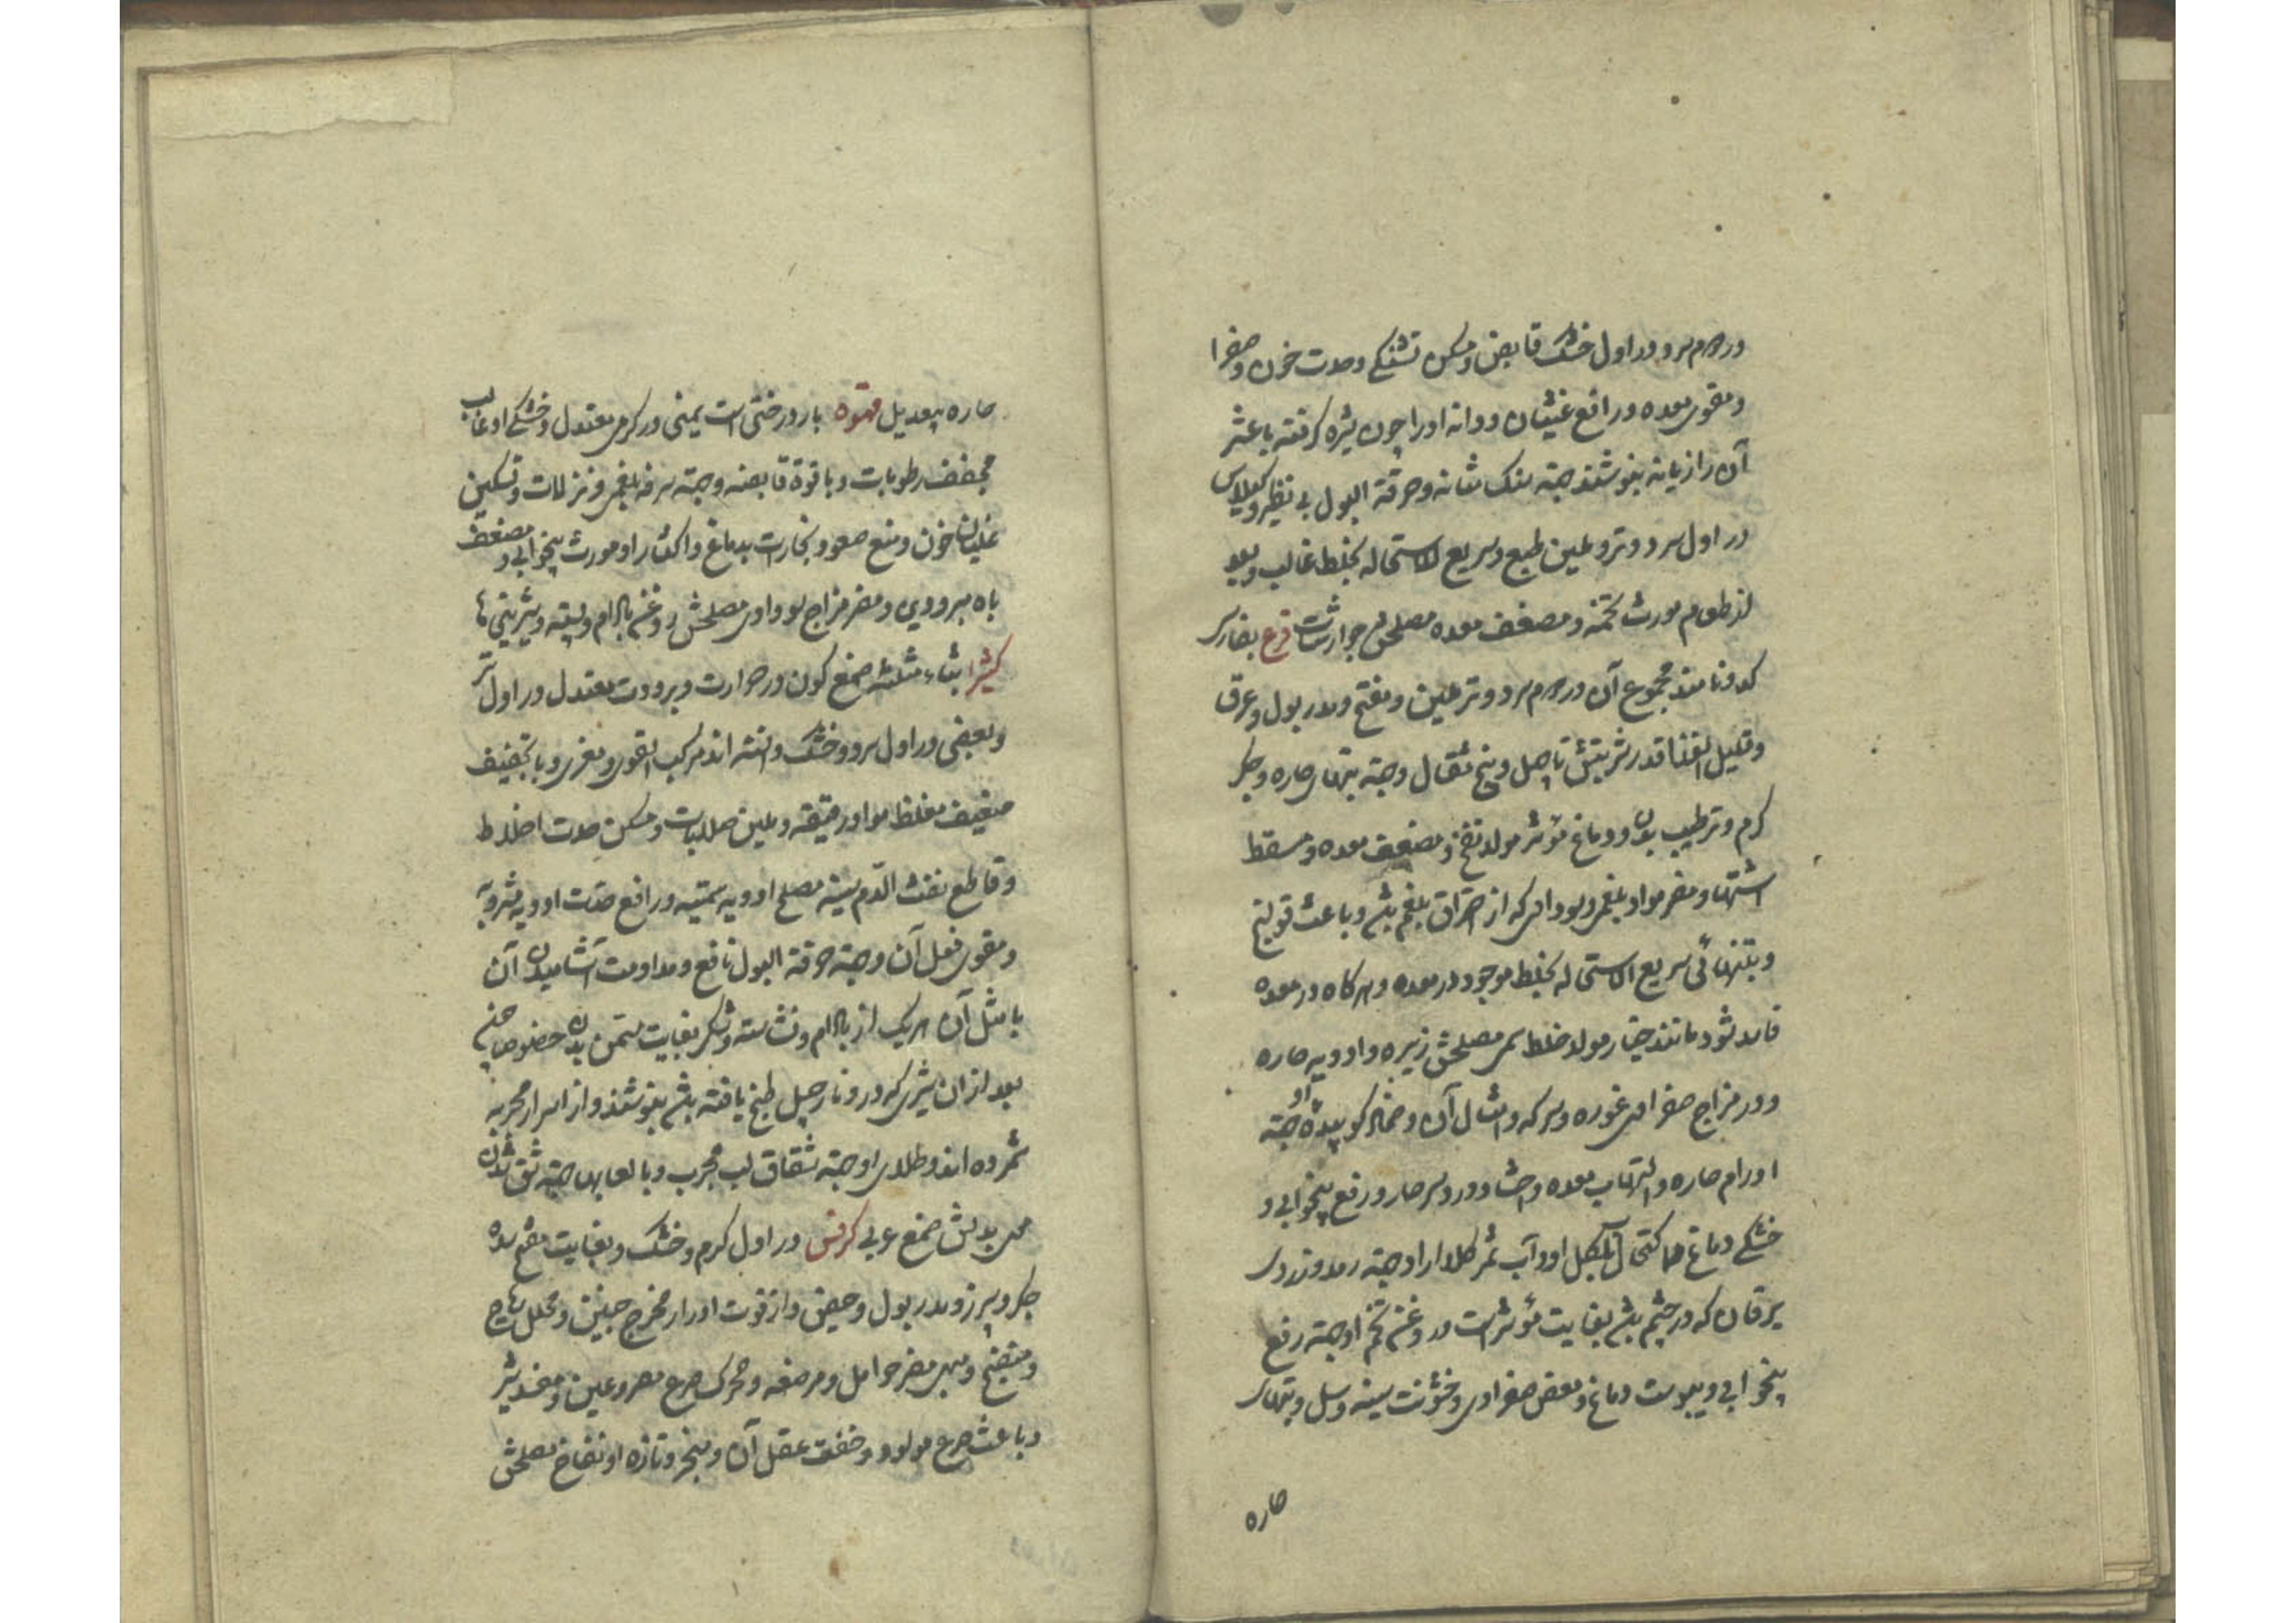 در دوم سرد و در اول خشک قابض و مسکن تشنگی و حدت خون و صفرا
و مقوی معده و رافع غثیان و دانه او را چون شیره گرفته با عشر
آن رازیانه بنوشند جهته سنک مثانه و حرقة البول بی نظیر و گیلاس
در اول سرد و تر و ملین طبع و سریع الاستحاله بخلط غالب و بعد
از طعام مورث تخمه و مضعف معده مصلحش جوارشات قرع بفارسی
کدو نامند مجموع آن در دوم سرد و تر ملین و مفتح و مدر بول و عرق
و قلیل الغذا قدر شربتش تا چهل و پنج مثقال و جهته تبهای حاره و جکر
کرم و ترطیب بدن و دماغ مؤثر مولد نفخ و مضعف معده و مسقط
اشتها و مضر مواد بلغمی و سوداوی که از احتراق بلغم باشد و باعث قولنج
و بتنهائی سریع الاستحاله بخلط موجود در معده و هرگاه در معده
فاسد شود مانند خیار مولد خلط سمی مصلحش زیره و ادویه حاره
و در مزاج صفراوی غوره و سرکه و امثال آن و ضماد کوبیده او جهته
اورام حاره و التهاب معده و احشا و درد سر حار و رفع بیخوابی و
خشکی دماغ و اکتحال آب کل او و آب ثمر کلدار او جهته رمد و زردی
یرقان که در چشم باشد بغایت مؤثر است و روغن تخم او جهته رفع
بیخوابی و یبوست دماغ و بعض صفراوی و خشونت سینه و سل و تبهای
حاره
حاره بیعدیل قهوه بار درختی است یمنی در کرمی معتدل و خشکی او غالب
مجفف رطوبات و با قوة قابضه و جهته سرفه بلغمی و نزلات و تسکین
غلیان خون و منع صعود بخارات بدماغ و اکثار او مورث بیخوابی و مضعف
باه مبرودین و مضر مزاج سوداوی مصلحش روغن بادام و پسته و شیرینی ها
کثیرا بثاء مثلثه صمغ کون در حرارت و برودت معتدل در اول تر
و بعضی در اول سرد و خشک دانسته اند مرکب القوی و مغری و با تجفیف
ضعیف مغلظ مواد رقیقه و ملین صلابات و مسکن حدت اخلاط
و قاطع نفث الدم سینه مصلح ادویه سمیه و رافع حدت ادویه مشروبه
و مقوی فعل آن و جهته حرقة البول نافع و مداومت آشامیدن آن
با مثل آن هریک از بادام و نشاسته و شکر بغایت مسمن بدن خصوصا چون
بعد از ان شیری که در و نارجیل طبخ یافته باشد بنوشند و از اسرار مجربه
شمرده اند و طلای او جهته شقاق لب مجرب و با لعابها جهته شق شدن
بدلش صمغ عربی کرفس در اول کرم و خشک و بغایت مفتح سده
جکر و سپرز و مدر بول و حیض و از قوت ادرار مخرج جنین و محلل ریاح
و منضج و مبهی مضر حوامل و مرضعه و محرک صرع مصروعین و مفسد شیر
و باعث صرع مولود و خفت عقل آن و مبخر و تازه او نفاخ مصلحش